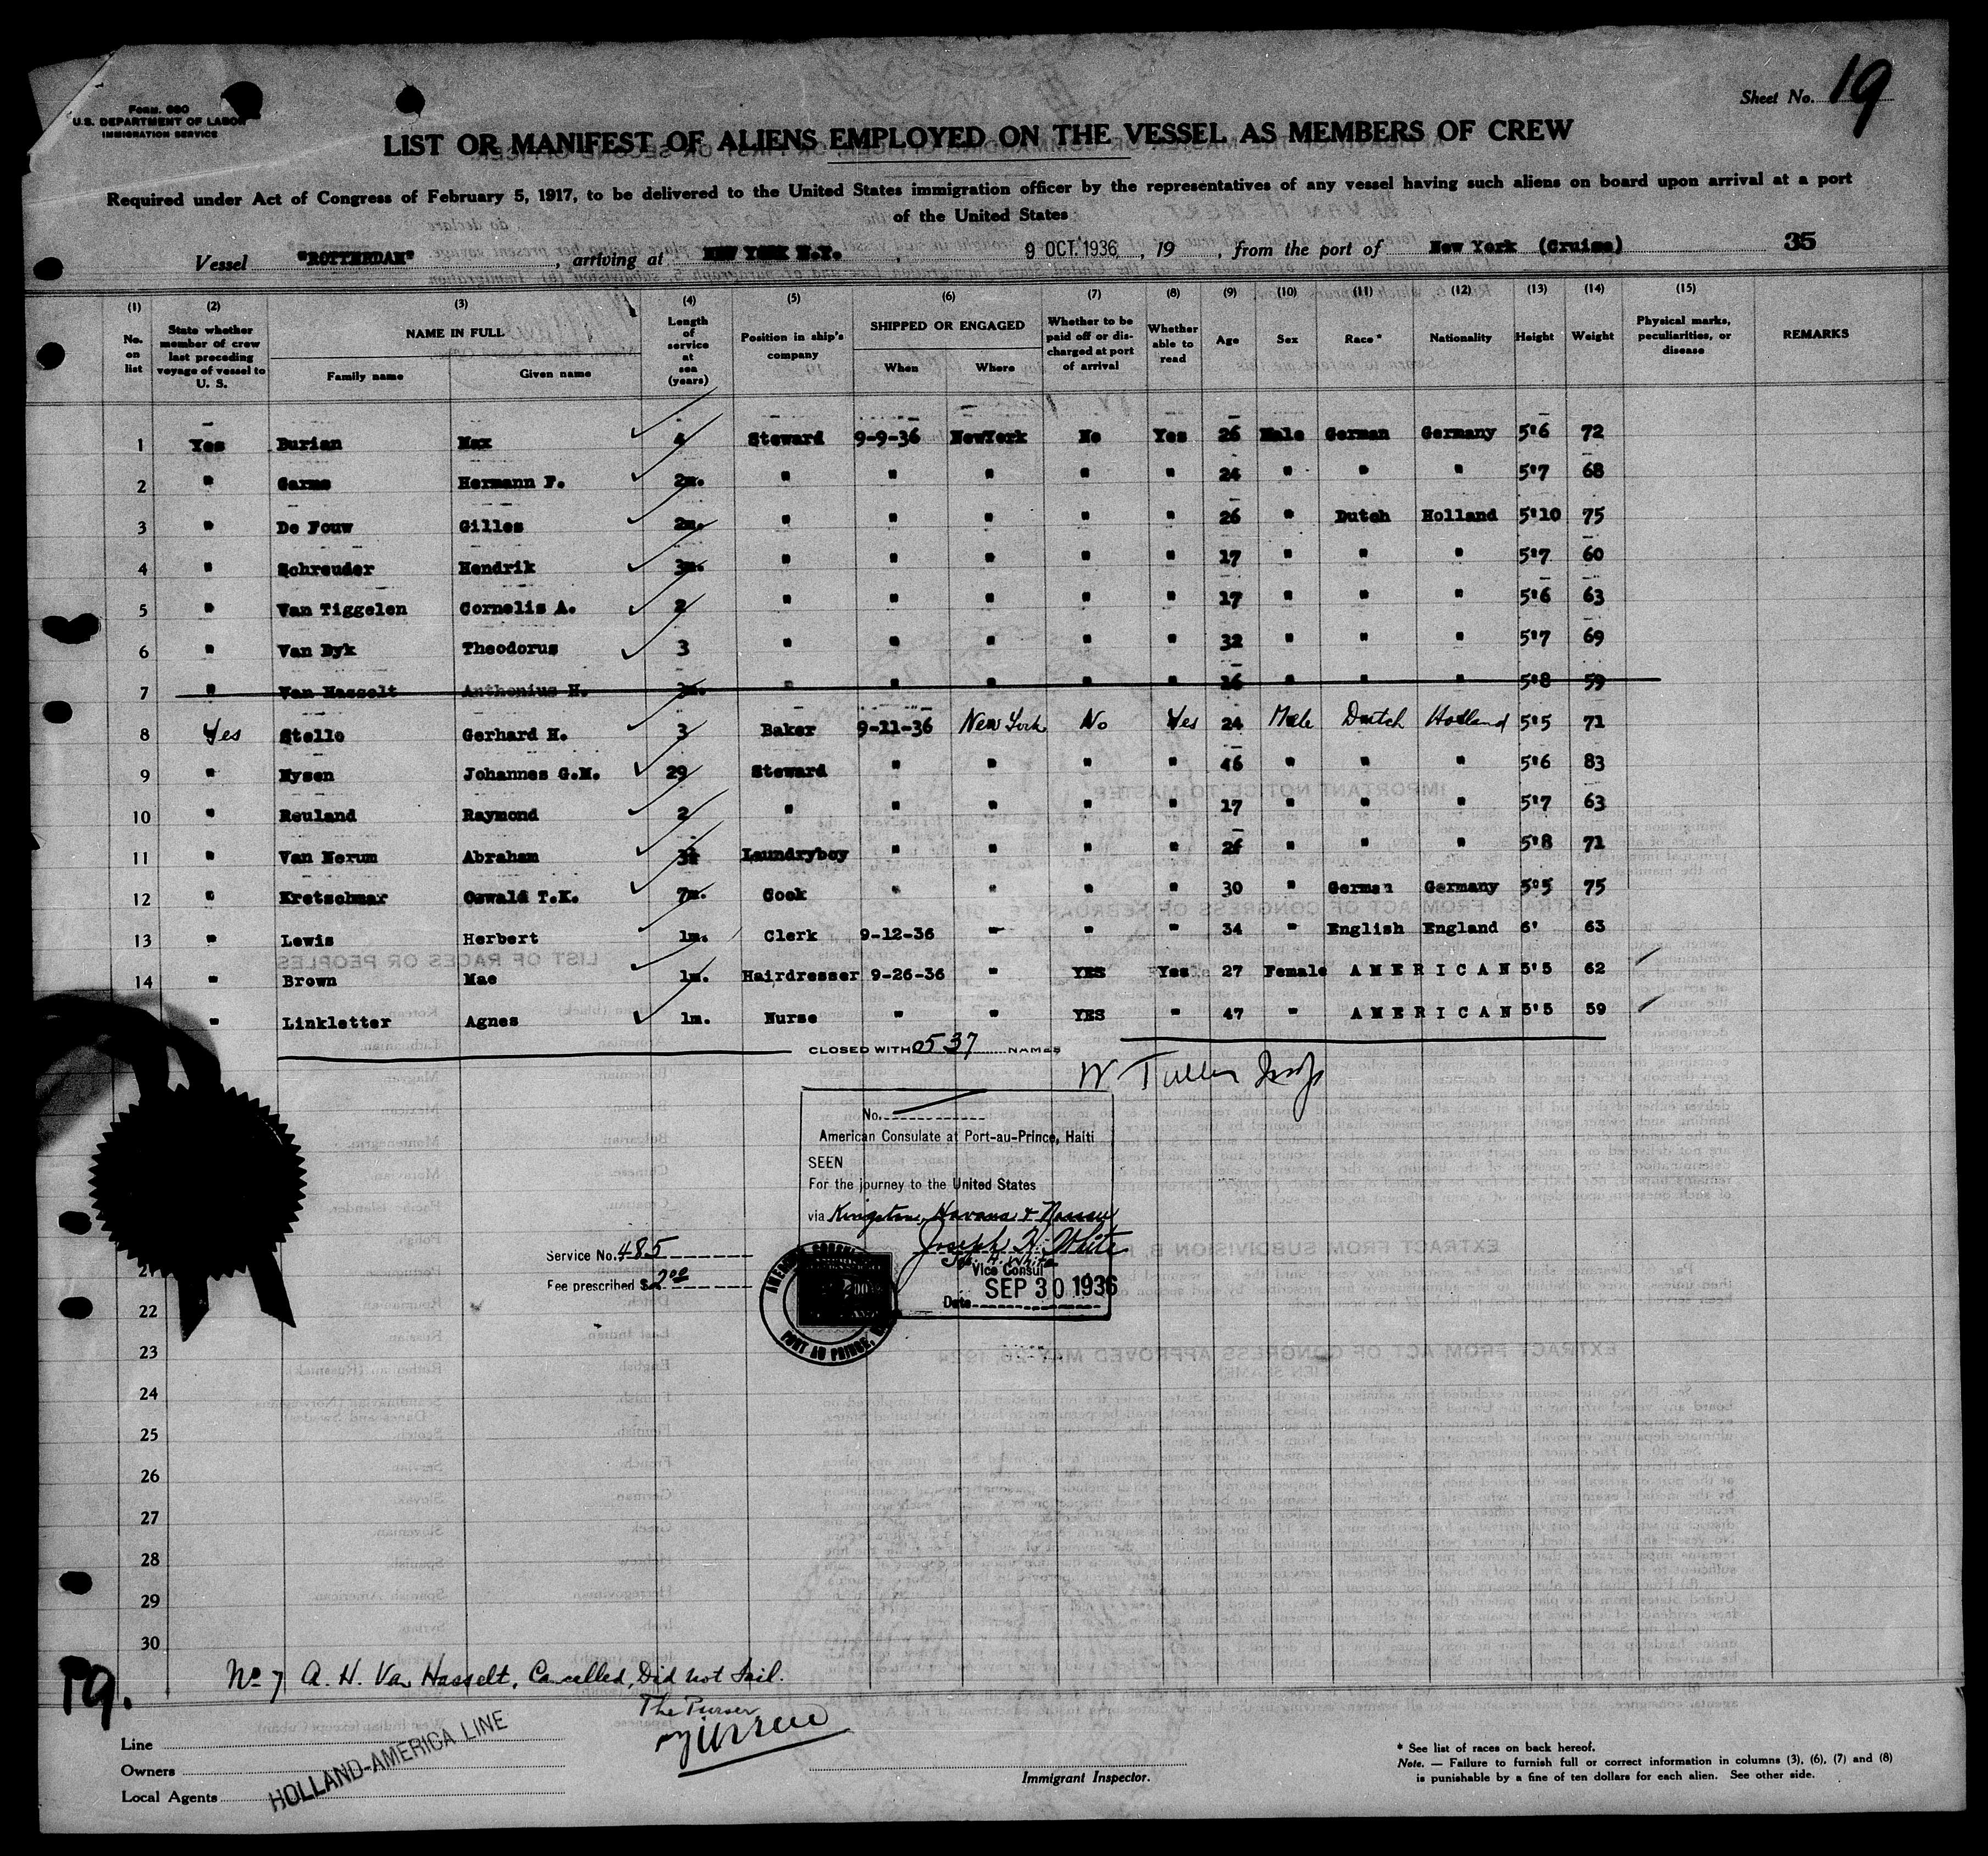 Form. 680
U.S. DEPARTMENT OF LABOR
IMMIGRATION SERVICE
Sheet No. 19
LIST OR MANIFEST OF ALIENS EMPLOYED ON THE VESSEL AS MEMBERS OF CREW
Required under Act of Congress of February 5, 1917, to be delivered to the United States immigration officer by the representatives of any vessel having such aliens on board upon arrival at a port
of the United States
Vessel "ROTTERDAM", arriving at NEW YORK N.Y. 9 OCT. 1936, 19 , from the port of New York (Cruise) 35
(1) (2) (3) (4) (5) (6) (7) (8) (9) (10) (11) (12) (13) (14) (15)
No. on list | State whether member of crew last preceding voyage of vessel to U. S. | NAME IN FULL | Family name | Given name | Length of service at sea (years) | Position in ship's company | SHIPPED OR ENGAGED | When | Where | Whether to be paid off or discharged at port of arrival | Whether able to read | Age | Sex | Race* | Nationality | Height | Weight | Physical marks, peculiarities, or disease | REMARKS
1 Yes Burian Max 4 Steward 9-9-36 NewYork No Yes 26 Male German Germany 5'6 72
2 " Garms Hermann F. 2m. " " " " " 24 " " " 5'7 68
3 " De Fouw Gilles 2m. " " " " " 26 " Dutch Holland 5'10 75
4 " Schreuder Hendrik 3m. " " " " " 17 " " " 5'7 60
5 " Van Tiggelen Cornelis A. 2 " " " " " 17 " " " 5'6 63
6 " Van Dyk Theodorus 3 " " " " " 32 " " " 5'7 69
7 " Van Hasselt Anthonius H. " " " " " 16 " " " 5'8 59
8 Yes Stelle Gerhard H. 3 Baker 9-11-36 New York No Yes 24 Male Dutch Holland 5'5 71
9 " Nysen Johannes G.M. 29 Steward " " " " 46 " " " 5'6 83
10 " Reuland Raymond 2 " " " " " 17 " " " 5'7 63
11 " Van Nerum Abraham Laundryboy " " " " " " " 5'8 71
12 " Kretschmar Oswald T.K. 7m. Cook " " " " 30 " German Germany 5'5 75
13 " Lewis Herbert 1m. Clerk 9-12-36 " " " 34 " English England 6' 63
14 " Brown Mae 1m. Hairdresser 9-26-36 " YES Yes 27 Female AMERICAN 5'5 62
" Linkletter Agnes 1m. Nurse " " YES " 47 " AMERICAN 5'5 59
CLOSED WITH 537 NAMES
No.
American Consulate at Port-au-Prince, Haiti
SEEN
For the journey to the United States
via Kingston, Havana & Nassau
Joseph H. White
Jos. H. White
Vice Consul
SEP 30 1936
Date
Service No. 485
Fee prescribed $2.00
PORT AU PRINCE,
22
23
24
25
26
27
28
29
30
No 7 A. H. Van Hasselt, Cancelled, Did not sail.
The Purser
19.
Line
Owners
Local Agents
HOLLAND-AMERICA LINE
Immigrant Inspector.
* See list of races on back hereof.
Note. — Failure to furnish full or correct information in columns (3), (6), (7) and (8)
is punishable by a fine of ten dollars for each alien. See other side.